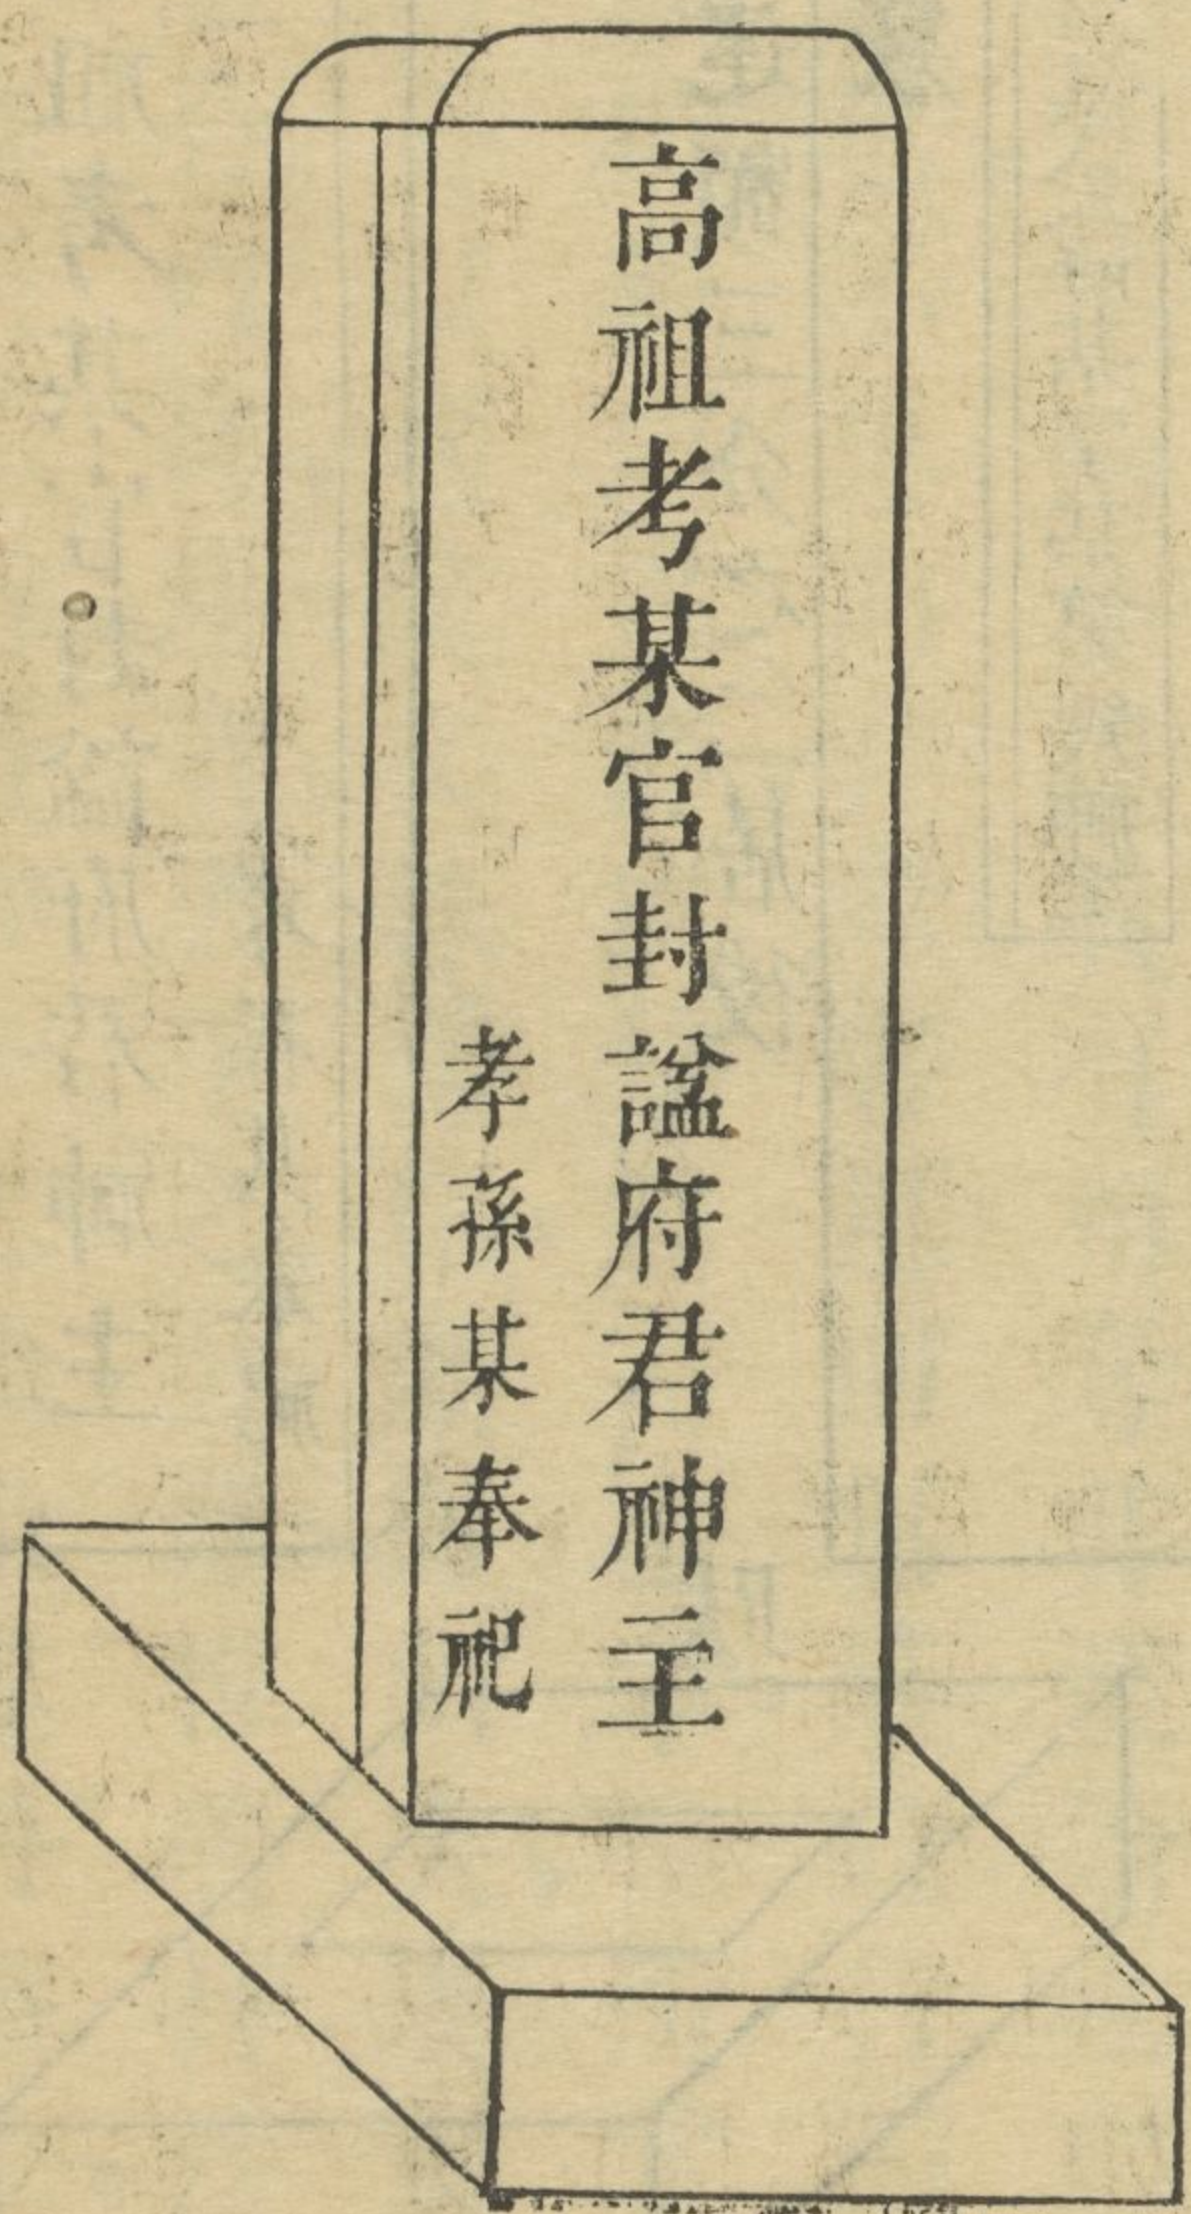 高祖考某官封諡府君神主
孝孫某奉祀